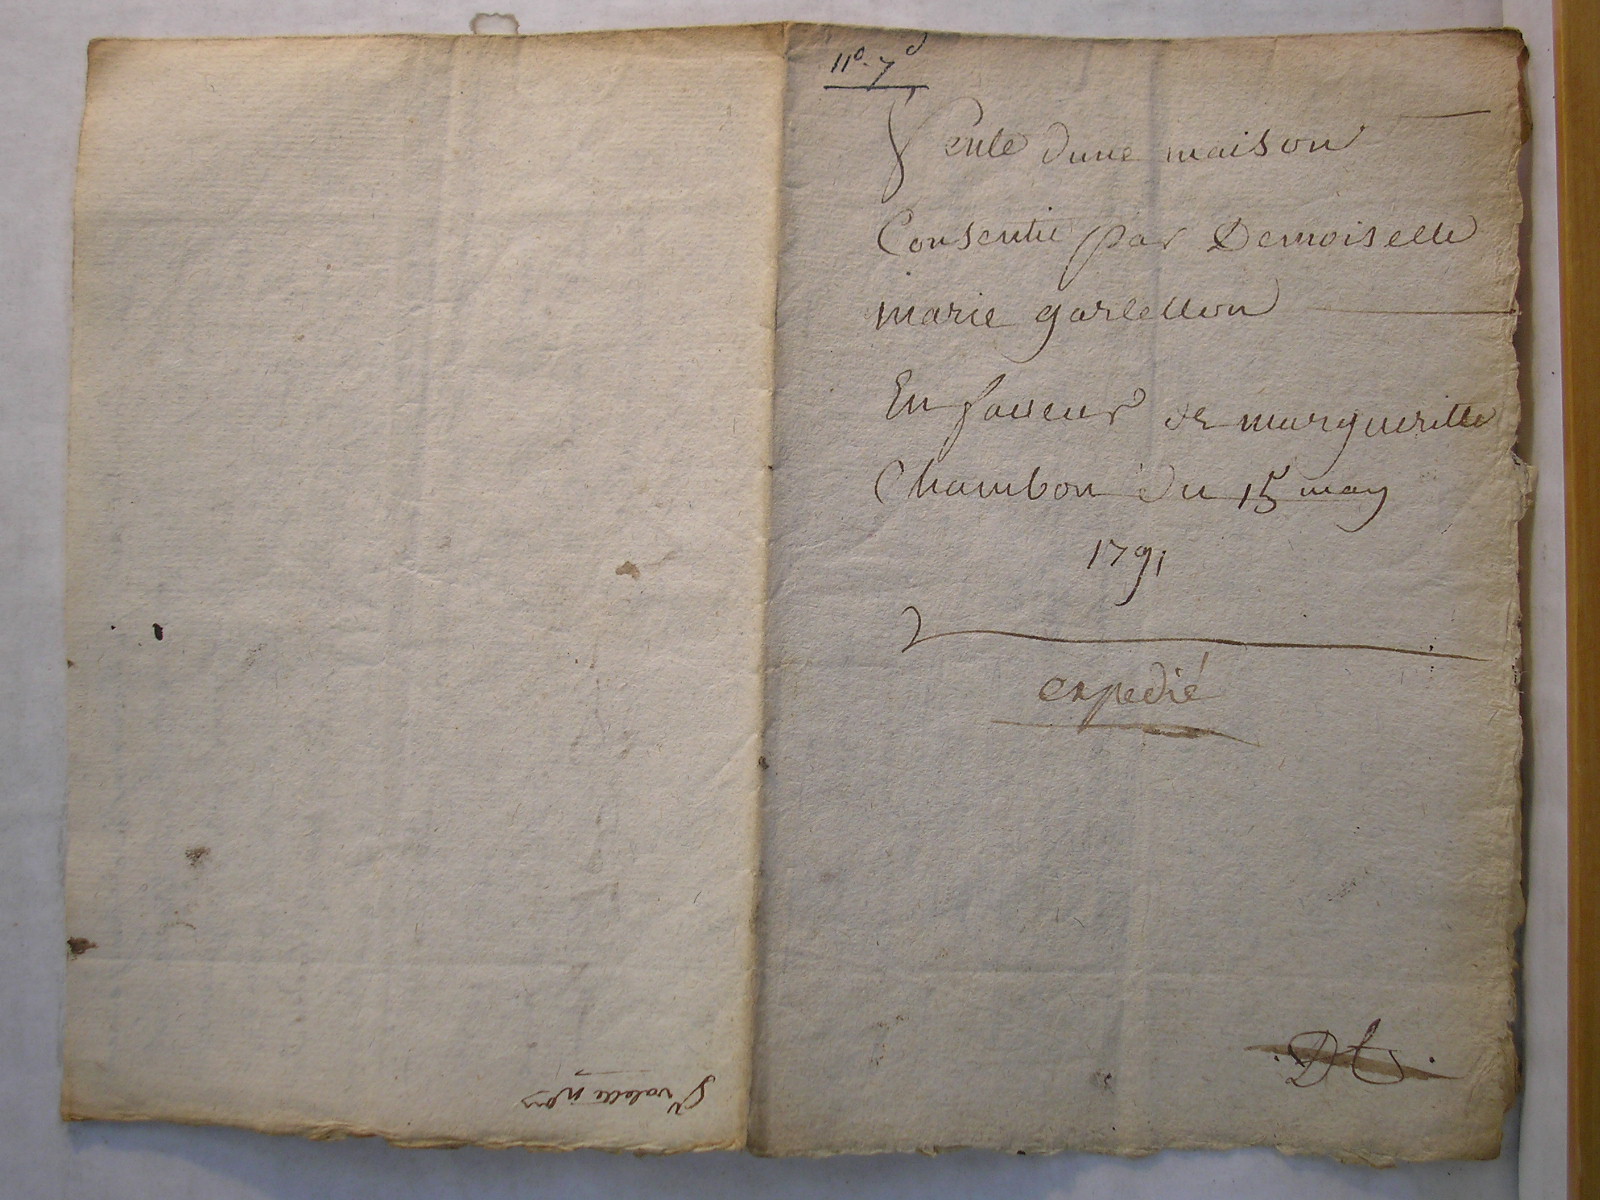 11s. 7d
Vente dune maison
Consentie par Demoiselle
marie garlellon
En faueur de margueritte
Chambon du 15 may
1791
expedié